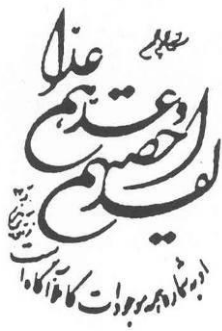 لقد احصیهم
وعدهم
عدا
او به شماره همه موجودات کاملاً آگاه است